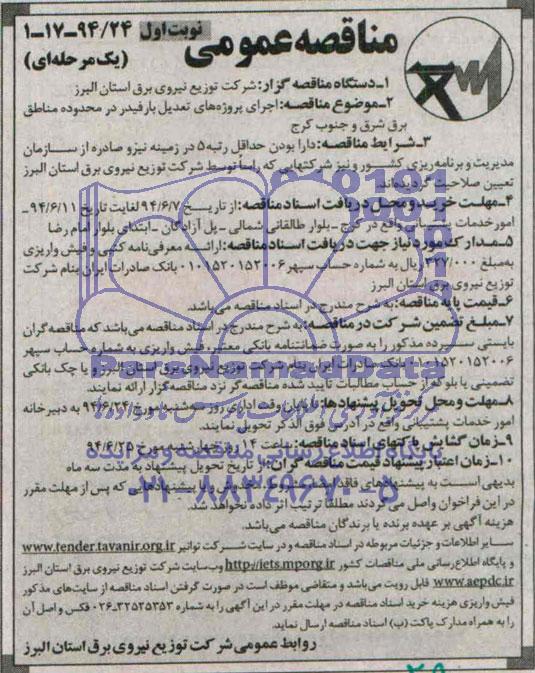 مناقصه عمومی
نوبت اول ۹۴/۲۴-۱۷-۱
(یک مرحله‌ای)
۱-دستگاه مناقصه گزار: شرکت توزیع نیروی برق استان البرز
۲-موضوع مناقصه: اجرای پروژه‌های تعدیل بار فیدر در محدوده مناطق
برق شرق و جنوب کرج
۳-شرایط مناقصه: دارا بودن حداقل رتبه۵ در زمینه نیرو صادره از سازمان
مدیریت و برنامه‌ریزی کشور و نیز شرکتهایی که راساً توسط شرکت توزیع نیروی برق استان البرز
تعیین صلاحیت گردیده‌اند.
۴-مهلت خرید و محل دریافت اسناد مناقصه: از تاریخ ۹۴/۶/۷ لغایت تاریخ ۹۴/۶/۱۱-
امور خدمات پشتیبانی واقع در کرج-بلوار طالقانی شمالی-پل آزادگان-ابتدای بلوار امام رضا
۵-مدارک مورد نیاز جهت دریافت اسناد مناقصه: ارائه معرفی‌نامه کتبی و فیش واریزی
به‌مبلغ ۳۲۷/۰۰۰ ریال به شماره حساب سپهر ۰۱۰۱۵۲۰۱۵۲۰۰۶ بانک صادرات ایران بنام شرکت
توزیع نیروی برق استان البرز
۶-قیمت پایه مناقصه: به شرح مندرج در اسناد مناقصه می‌باشد.
۷-مبلغ تضمین شرکت در مناقصه: به شرح مندرج در اسناد مناقصه می‌باشد که مناقصه گران
بایستی سپرده مذکور را به صورت ضمانتنامه بانکی معتبر، فیش واریزی به شماره حساب سپهر
۰۱۰۱۵۲۰۱۵۲۰۰۶ بانک صادرات ایران بنام شرکت توزیع نیروی برق استان البرز و یا چک بانکی
تضمینی یا بلوکه از حساب مطالبات تایید شده مناقصه گر نزد مناقصه گزار ارائه نمایند.
۸-مهلت و محل تحویل پیشنهادها: تا پایان وقت اداری روز سه‌شنبه مورخ ۹۴/۶/۲۴ به دبیرخانه
امور خدمات پشتیبانی واقع در آدرس فوق الذکر تحویل نمایند.
۹-زمان گشایش پاکتهای اسناد مناقصه: ساعت ۱۴ روز چهارشنبه مورخ ۹۴/۶/۲۵
۱۰-زمان اعتبار پیشنهاد قیمت مناقصه گران: از تاریخ تحویل پیشنهاد به مدت سه ماه
بدیهی است به پیشنهادهای فاقد امضاء، مشروط، مخدوش و یا پیشنهادهایی که پس از مهلت مقرر
در این فراخوان واصل می‌گردند مطلقاً ترتیب اثر داده نخواهد شد.
هزینه آگهی بر عهده برنده یا برندگان مناقصه می‌باشد.
سایر اطلاعات و جزئیات مربوطه در اسناد مناقصه و در سایت شرکت توانیر www.tender.tavanir.org.ir
و پایگاه اطلاع رسانی ملی مناقصات کشور http://iets.mporg.ir وب‌سایت شرکت توزیع نیروی برق استان البرز
www.aepdc.ir قابل رویت می‌باشد و متقاضی موظف است در صورت گرفتن اسناد مناقصه از سایت‌های مذکور
فیش واریزی هزینه خرید اسناد مناقصه در مهلت مقرر در این آگهی را به شماره ۳۲۵۲۵۳۵۳-۰۲۶ فکس و اصل آن
را به همراه مدارک پاکت (ب) اسناد مناقصه ارسال نماید.
روابط عمومی شرکت توزیع نیروی برق استان البرز
پایگاه اطلاع رسانی مناقصه و مزایده
۰۲۱-۸۸۳۴۹۶۷۰-۵